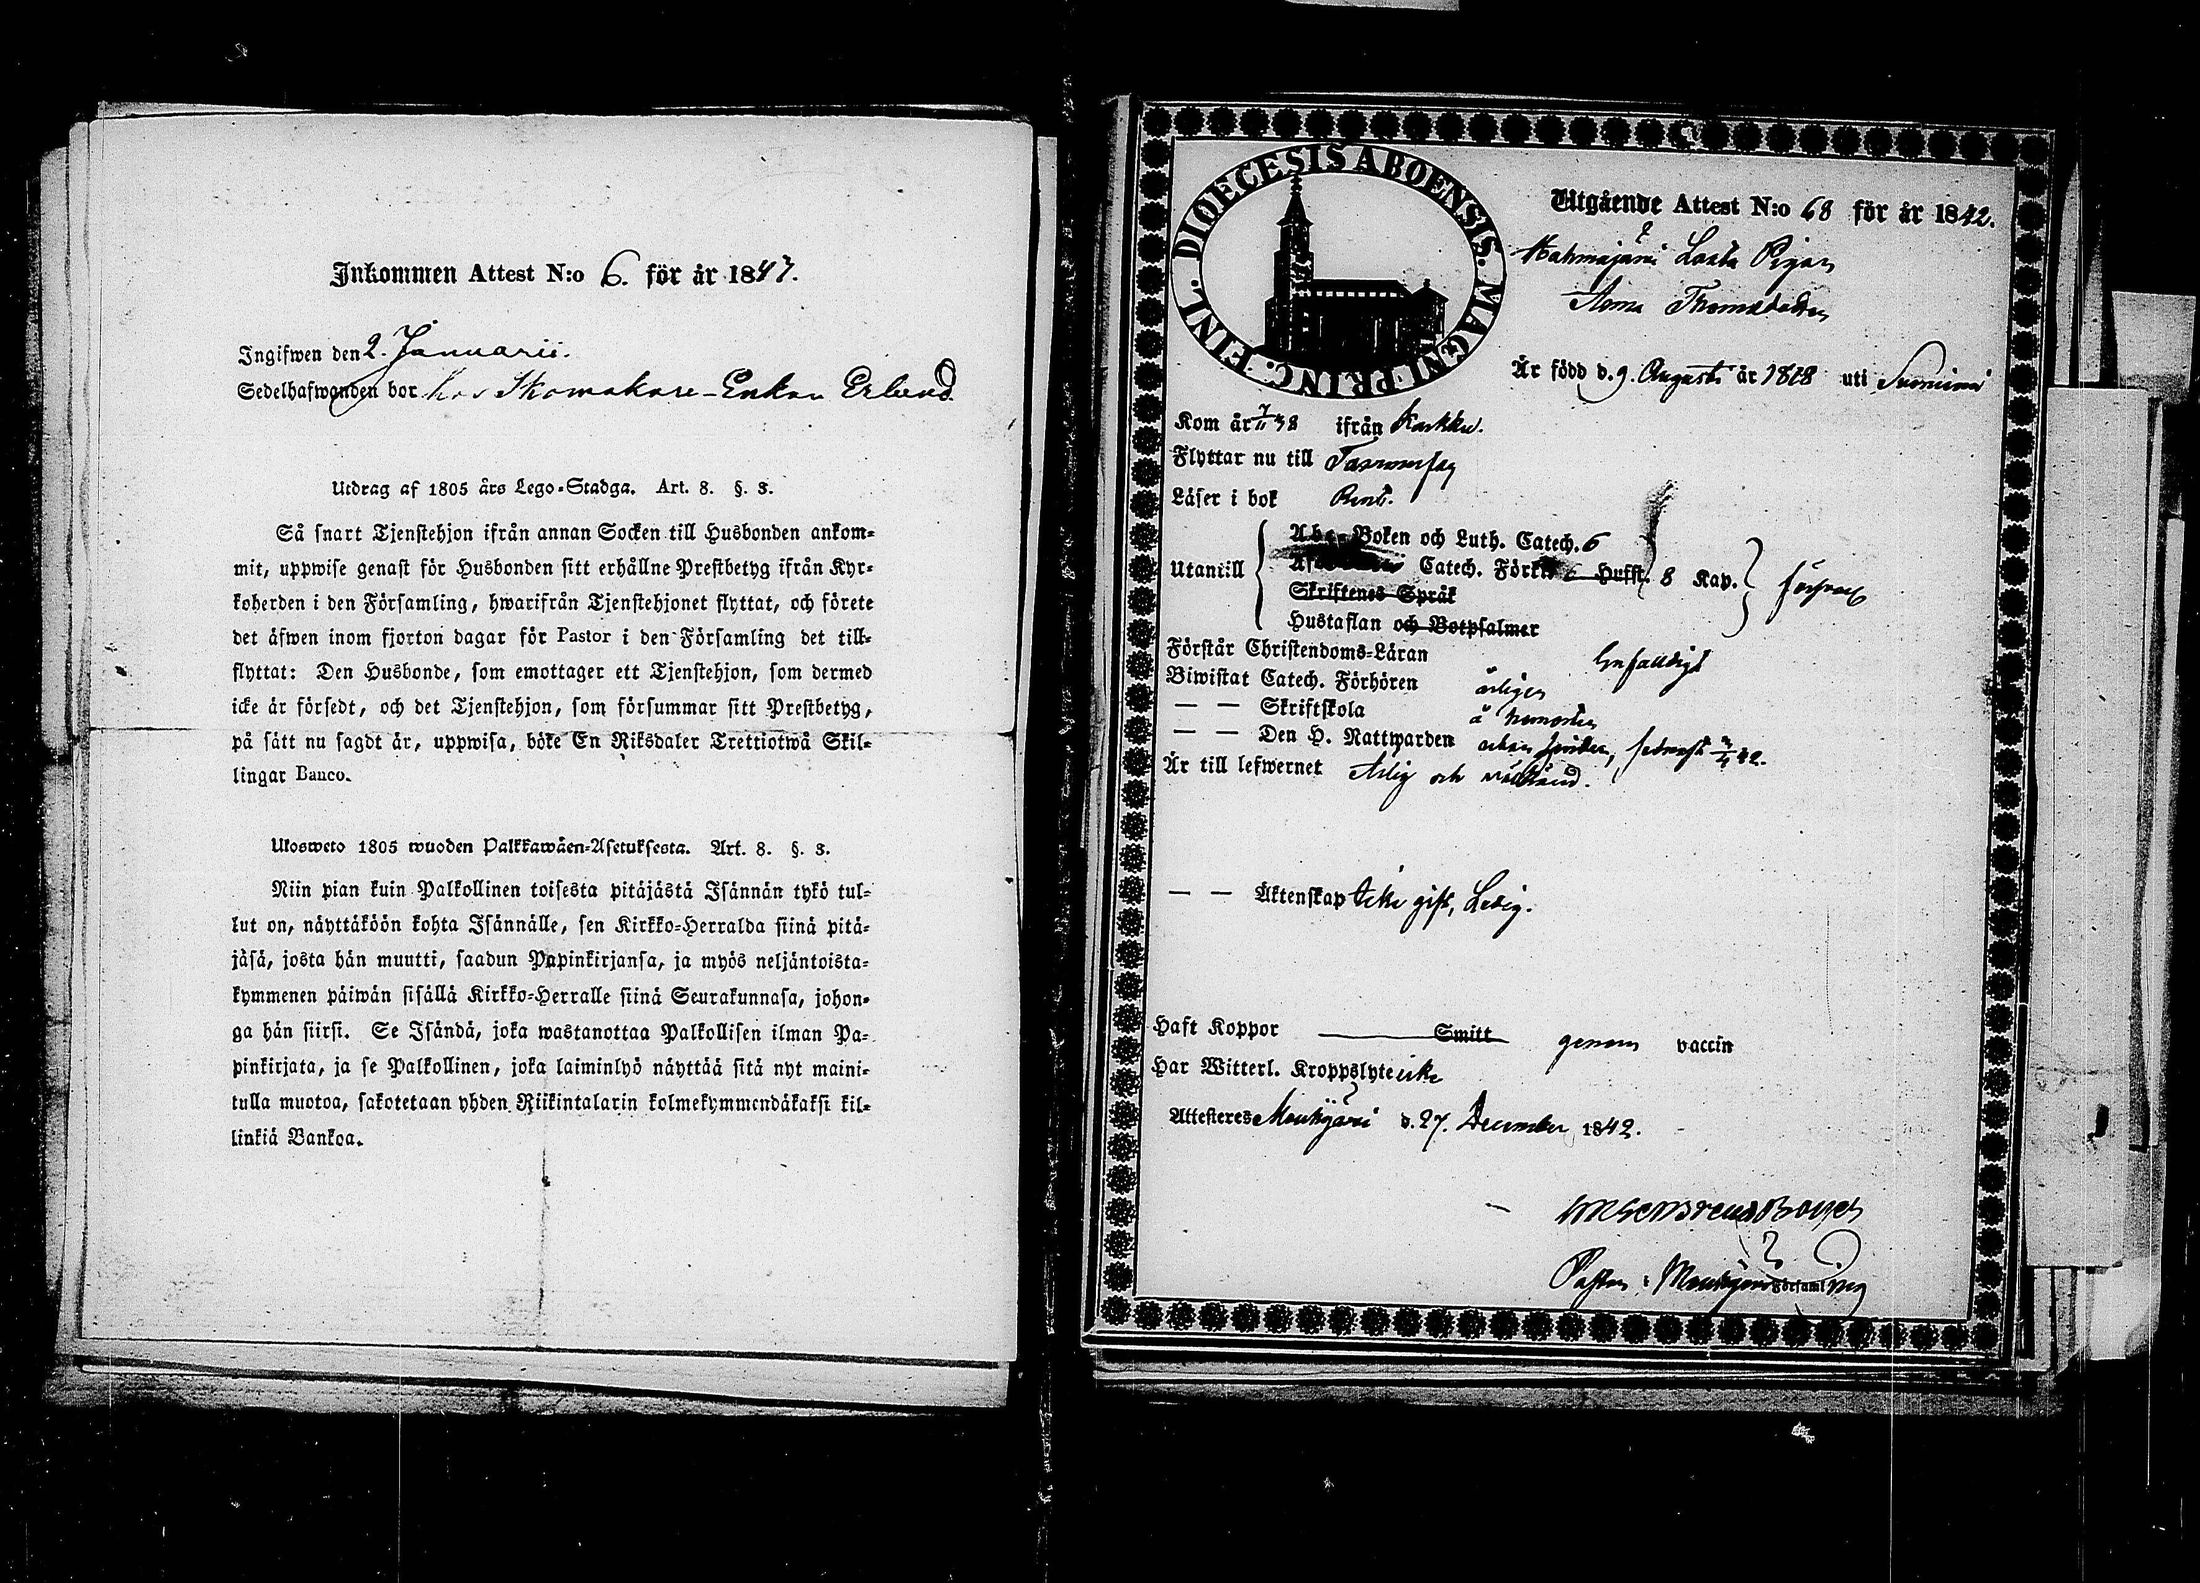 Inkommen Attest N:o 6. för år 1843.
Ingifwen den 2. Januarii.
Sedelhafwanden bor hos Skomakare-Enkan Erlund
Utdrag af 1805 års Lego-Stadga. Art. 8. §. 3.
Så snart Tjenstehjon ifrån annan Socken till Husbonden ankom-
mit, uppwise genast för Husbonden sitt erhållne Prestbetyg ifrån Kyr-
koherden i den Församling, hwarifrån Tjenstehjonet flyttat, och förete
det äfwen inom fjorton dagar för Pastor i den Församling det till-
flyttat: Den Husbonde, som emottager ett Tjenstehjon, som dermed
icke är försedt, och det Tjenstehjon, som försummar sitt Prestbetyg,
på sätt nu sagdt är, uppwisa, böte En Riksdaler Trettiotwå Skil-
lingar Banco.
Ulosweto 1805 wuoden Palkkawäen-Asetuksesta. Art. 8. §. 3.
Niin pian kuin Palkollinen toisesta pitäjästä Isännän tykö tul-
lut on, näyttäköön kohta Isännälle, sen Kirkko-Herralda siinä pitä-
jäsä, josta hän muutti, saadun Papinkirjansa, ja myös neljäntoista-
kymmenen päiwän sisällä Kirkko-Herralle siinä Seurakunnasa, johon-
ga hän siirsi. Se Isändä, joka wastanottaa Palkollisen ilman Pa-
pinkirjata, ja se Palkollinen, joka laiminlyö näyttää sitä nyt maini-
tulla muotoa, sakotetaan yhden Riikintalarin kolmekymmendäkaksi kil-
linkiä Bankoa.
DIOECESIS ABOENSIS. MAGNI PRINC. FINL.
Utgående Attest N:o 68 för år 1842.
Lasta Pigan
Anna Thomasdotter
Är född d. 9. Augusti år 1818 uti Suoniemi
Kom år 7/11 38 ifrån Karkku.
Flyttar nu till Tammerfors
Läser i bok Rent.
Utantill
Abc-Boken och Luth. Catech. 6
Catech. Förkl. Husft. 8 Kap. försvarl
Skriftenes Språk
Hustaflan och Botpsalmer
Förstår Christendoms-Läran Enfalldigt
Biwistat Catech. Förhören årligen
— — Skriftskola
— — Den H. Nattwarden sednast 42.
Är till lefwernet Ärlig och
— — Äktenskap Icke gift, Ledig.
Haft Koppor Smitt genom vaccin
Har Witterl. Kroppslyte icke
Attesteres Mouhijärvi d. 27. December 1842.
Pastor i Mouhijärvi Församling